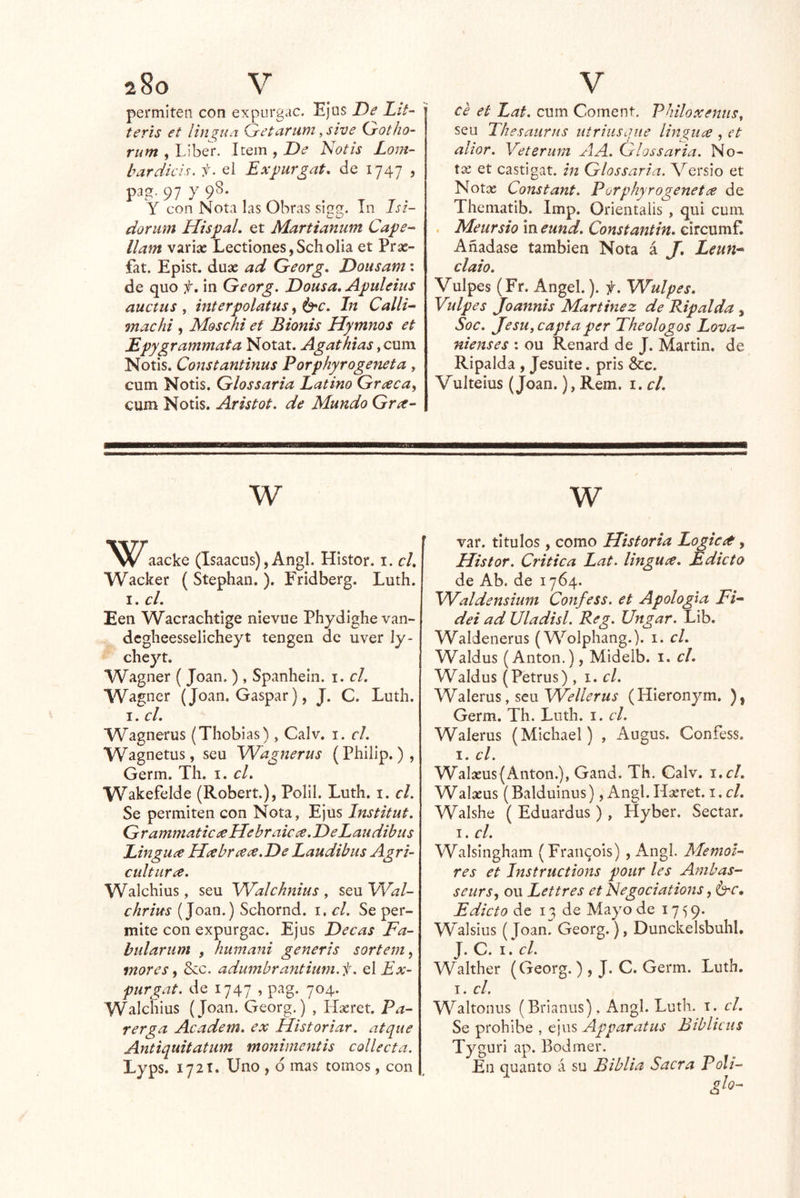 280 V
permiten con expurgac. Ejus De Lit-
teris et lingua Getarum, sive Gotho-
rum, Liber. Item, De Notis Lom-
bardicis. ℣. el Expurgat. de 1747,
pag. 97 y 98.
Y con Nota las Obras sigg. In Isi-
dorum Hispal. et Martianum Cape-
llam variæ Lectiones, Scholia et Præ-
fat. Epist. duæ ad Georg. Dousam:
de quo ℣. in Georg. Dousa. Apuleius
auctus, interpolatus, &c. In Calli-
machi, Moschi et Bionis Hymnos et
Epygrammata Notat. Agathias, cum
Notis. Constantinus Porphyrogeneta,
cum Notis. Glossaria Latino Græca,
cum Notis. Aristot. de Mundo Græ-
V
cè et Lat. cum Coment. Philoxenus,
seu Thesaurus utriusque linguæ, et
alior. Veterum AA. Glossaria. No-
tæ et castigat. in Glossaria. Versio et
Notæ Constant. Porphyrogenetæ de
Thematib. Imp. Orientalis, qui cum
Meursio in eund. Constantin. circumf.
Añadase tambien Nota á J. Leun-
claio.
Vulpes (Fr. Angel.). ℣. Wulpes.
Vulpes Joannis Martinez de Ripalda,
Soc. Jesu, capta per Theologos Lova-
nienses: ou Renard de J. Martin. de
Ripalda, Jesuite. pris &c.
Vulteius (Joan.), Rem. 1. cl.
W
Waacke (Isaacus), Angl. Histor. 1. cl.
Wacker (Stephan.). Fridberg. Luth.
1. cl.
Een Wacrachtige nievue Phydighe van-
degheesselicheyt tengen de uver ly-
cheyt.
Wagner (Joan.), Spanhein. 1. cl.
Wagner (Joan. Gaspar), J. C. Luth.
1. cl.
Wagnerus (Thobias), Calv. 1. cl.
Wagnetus, seu Wagnerus (Philip.),
Germ. Th. 1. cl.
Wakefelde (Robert.), Polil. Luth. 1. cl.
Se permiten con Nota, Ejus Institut.
Grammaticæ Hebraicæ. De Laudibus
Linguæ Hæbrææ. De Laudibus Agri-
culturæ.
Walchius, seu Walchnius, seu Wal-
chrius (Joan.) Schornd. 1. cl. Se per-
mite con expurgac. Ejus Decas Fa-
bularum, humani generis sortem,
mores, &c. adumbrantium. ℣. el Ex-
purgat. de 1747, pag. 704.
Walchius (Joan. Georg.), Hæret. Pa-
rerga Academ. ex Historiar. atque
Antiquitatum monimentis collecta.
Lyps. 1721. Uno, ó mas tomos, con
W
var. titulos, como Historia Logicæ,
Histor. Critica Lat. linguæ. Edicto
de Ab. de 1764.
Waldensium Confess. et Apologia Fi-
dei ad Uladisl. Reg. Ungar. Lib.
Waldenerus (Wolphang.). 1. cl.
Waldus (Anton.), Midelb. 1. cl.
Waldus (Petrus), 1. cl.
Walerus, seu Wellerus (Hieronym.),
Germ. Th. Luth. 1. cl.
Walerus (Michael), Augus. Confess.
1. cl.
Walæus (Anton.), Gand. Th. Calv. 1. cl.
Walæus (Balduinus), Angl. Hæret. 1. cl.
Walshe (Eduardus), Hyber. Sectar.
1. cl.
Walsingham (François), Angl. Memoi-
res et Instructions pour les Ambas-
seurs, ou Lettres et Negociations, &c.
Edicto de 13 de Mayo de 1759.
Walsius (Joan. Georg.), Dunckelsbuhl.
J. C. 1. cl.
Walther (Georg.), J. C. Germ. Luth.
1. cl.
Waltonus (Brianus). Angl. Luth. 1. cl.
Se prohibe, ejus Apparatus Biblicus
Tyguri ap. Bodmer.
En quanto á su Biblia Sacra Poli-
glo-